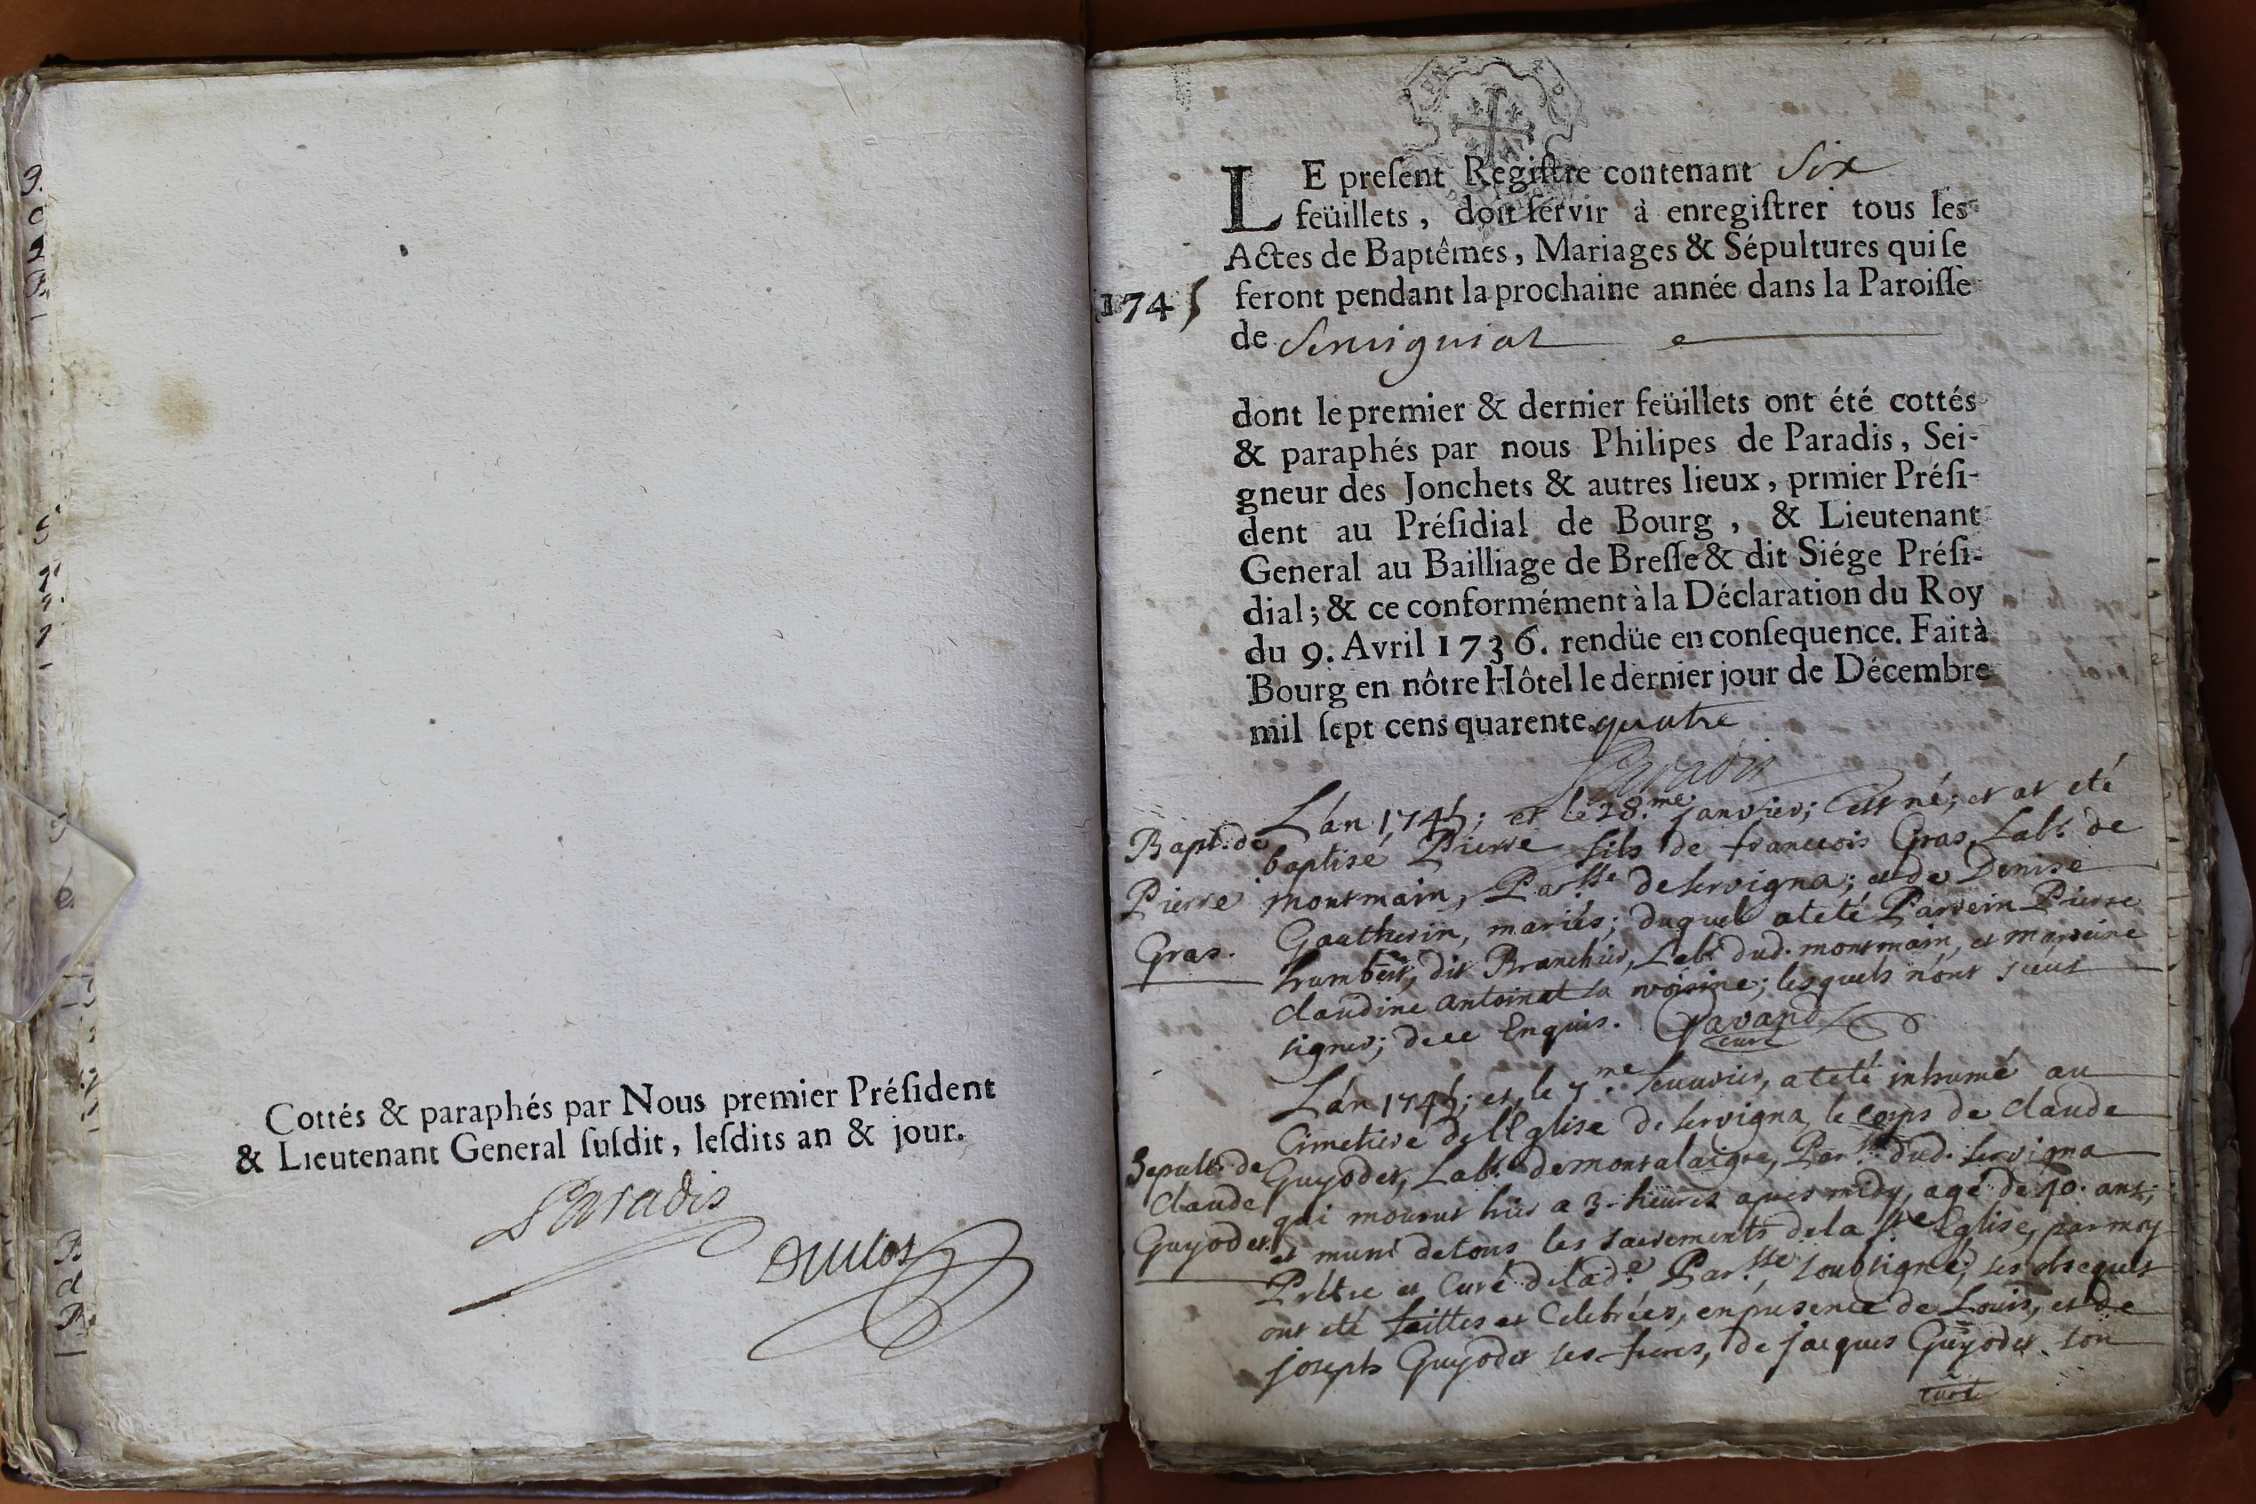 Cottés & paraphés par Nous premier Préſident
& Lieutenant General ſuſdit, leſdits an & jour.
Paradis
LE preſent Regiſtre contenant Six
feüillets, doit ſervir à enregiſtrer tous les
Actes de Baptêmes, Mariages & Sépultures qui ſe
1745 feront pendant la prochaine année dans la Paroiſſe
de Servignat
dont le premier & dernier feüillets ont été cottés
& paraphés par nous Philipes de Paradis, Sei-
gneur des Jonchets & autres lieux, prmier Préſi-
dent au Préſidial de Bourg, & Lieutenant
General au Bailliage de Breſſe & dit Siége Préſi-
dial; & ce conformément à la Déclaration du Roy
du 9. Avril 1736. rendüe en conſequence. Fait à
Bourg en nôtre Hôtel le dernier jour de Décembre
mil ſept cens quarente quatre
Paradis
Bapt. de
Pierre
Gras.
L'an 1745; et le 28.me janvier; est né; et at eté
baptisé Pierre fils de francois Gras, Lab.r de
montmain, Par.sse de servigna; et de Denise
Gautherin, mariés; duquel at eté Parrein Pierre
humbert, dit Branchier, Lab.r dud. montmain, et marreine
claudine antoinat sa voisine; lesquels n'ont sceus
signer; de ce Enquis. Gavand
curé
Sepult. de
Claude
Guyodet
L'an 1745; et, le 7.me fevurier, at eté inhumé au
Cimetiere de l'Eglise de servigna le corps de claude
Guyodet, Lab.r de montalaigre, Par.sse dud. servigna
qui mourut hier a 3. heures apres midy, agé de 50. ans;
et muni de tous les sacrements de la s.te Eglise, par moy
Prêtre et Curé de lad.e Par.sse, soubsigné; ses obseques
ont eté faittes et Celebrées, en presence de Louis, et de
joseph Guyodet ses freres, de jacques Guyodet son
curé